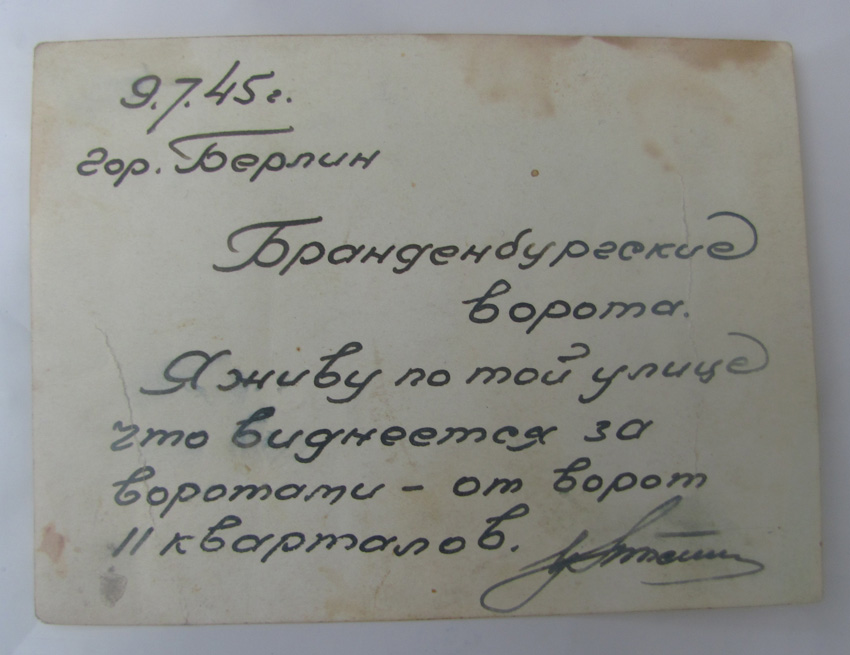 9.7.45г.
гор. Берлин
Бранденбургские
ворота.
Я живу по той улице
что виднеется за
воротами - от ворот
11 кварталов.